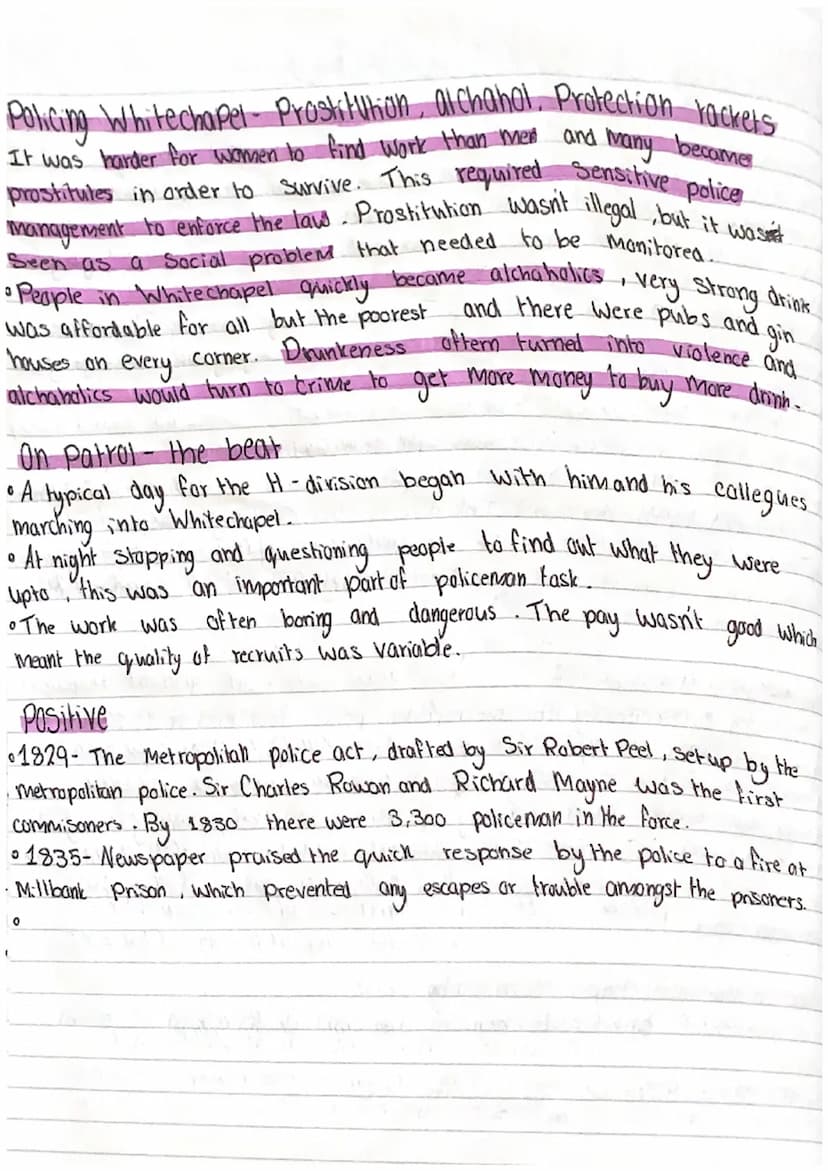 Policing Whitechapel - Prostitution, alchahol, Protection rackets
It was harder for women to find work than men and many became
prostitutes in order to survive. This required sensitive police
management to enforce the law. Prostitution wasn't illegal, but it was
seen as a social problem that needed to be monitored.
°People in Whitechapel quickly became alchaholics, very strong drink
was affordable for all but the poorest and there were pubs and gin
houses on every corner. Drunkeness oftern turned into violence and
alchaholics would turn to crime to get more money to buy more drink.
On patrol - the beat
° A typical day for the H-division began with him and his collegues
marching into Whitechapel.
° At night stopping and questioning people to find out what they were
upto, this was an important part of policeman task.
°The work was often boring and dangerous. The pay wasn't good which
meant the quality of recruits was variable.
Positive
°1829- The Metropolitan police act, drafted by Sir Robert Peel, set up by the
metropolitan police. Sir Charles Rowan and Richard Mayne was the first
commisoners. By 1830 there were 3,300 policeman in the force.
°1835- Newspaper praised the quick response by the police to a fire at
Millbank Prison, which prevented any escapes or trouble amongst the prisoners.
°